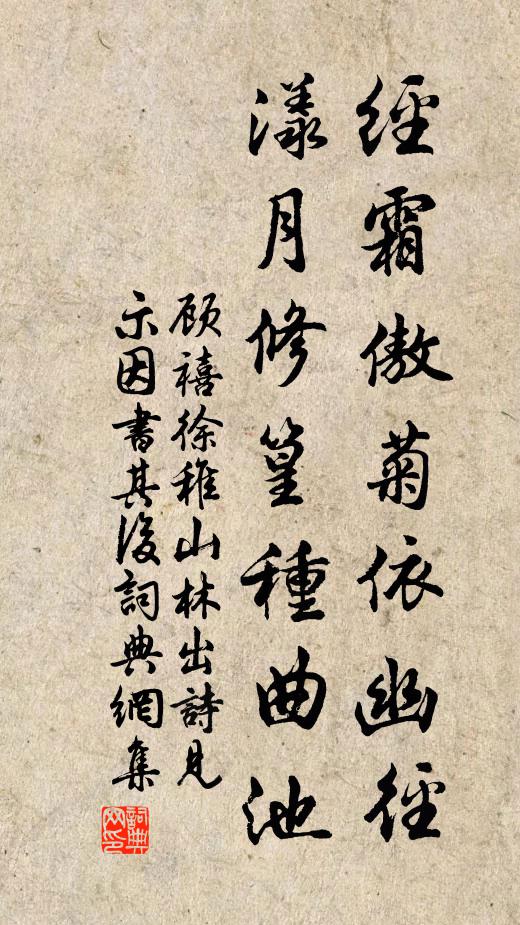 經霜傲菊依幽徑
漾月修篁種曲池
顾禧徐稚山林出詩見
示因書其後詞典網集
詞典
网印